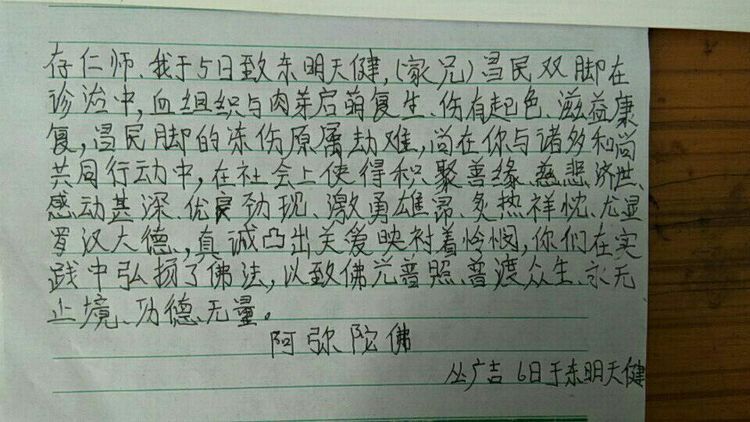 存仁师、我于5日致东明天健,(家兄)昌民双脚在
诊治中,血组织与肉芽启萌复生、伤有起色、滋益康
复,昌民脚的冻伤原属劫难,尚在你与诸多和尚
共同行动中,在社会上使得积聚善缘、慈悲济世、
感动甚深、优良劲现、激勇雄昂多热祥忱、尤显
罗汉大德、真诚凸出关爱映衬着怜悯,你们在实
践中弘扬了佛法,以致佛光普照、普渡众生、永无
止境、功德无量。
阿弥陀佛
丛广吉 6日于东明天健